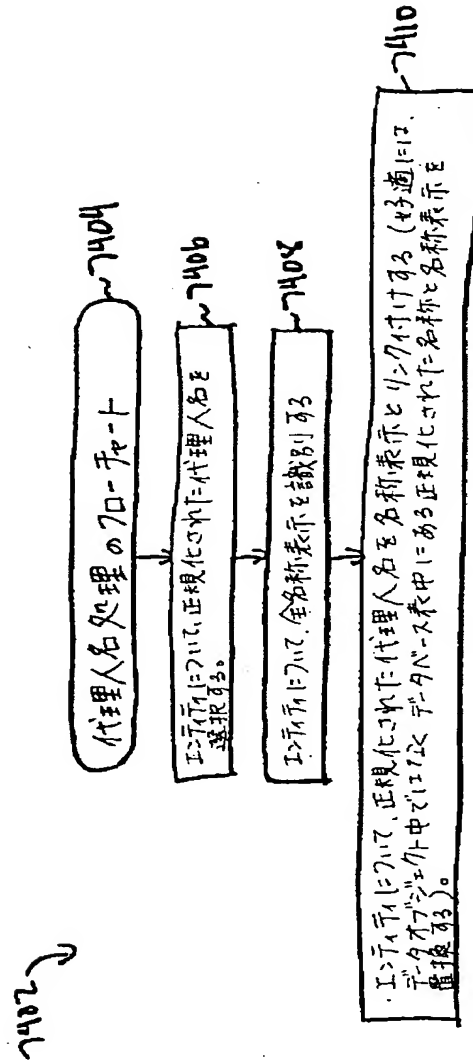 7402
代理人名処理のフローチャート
7404
エンティティについて、正規化された代理人名を
選択する。
7406
エンティティについて、全名称表示を識別する
7408
エンティティについて、正規化された代理人名を名称表示とリンク付けする (好適には、
データオブジェクト中ではなく データベース表中にある正規化された名称と名称表示を
置換する)。
7410